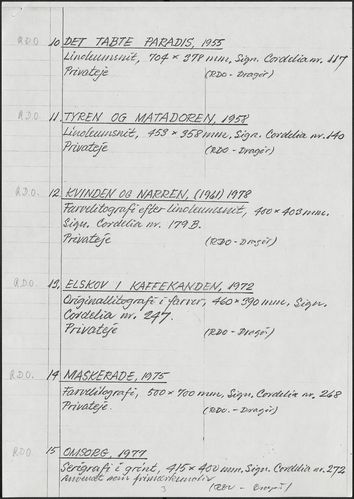 R.D.O. 10 DET TABTE PARADIS, 1955
Linoleumsnit, 704 × 378 mm, Sign. Cordelia nr. 117
Privateje (RDO - Dragör)
R.D.O. 11. TYREN OG MATADOREN, 1958
Linoleumsnit, 453 × 358 mm, Sign. Cordelia nr. 140
Privateje (RDO - Dragör)
R.D.O. 12. KVINDEN OG NARREN, (1961) 1978
Farvelitografi efter linoleumsnit, 400 × 403 mm.
Sign. Cordelia nr. 179 B.
Privateje (RDO - Dragör)
R.D.O. 13. ELSKOV I KAFFEKANDEN, 1972
Originallitografi i farver, 460 × 590 mm, Sign.
Cordelia nr. 247.
Privateje (RDO - Dragör)
R.D.O. 14 MASKERADE, 1975
Farvelitografi, 500 × 700 mm, Sign. Cordelia nr. 268
Privateje (RDO - Dragör)
RDO 15 OMSORG, 1977
Serigrafi i grönt, 415 × 400 mm, Sign. Cordelia nr. 272
Anvendt som (RDO - Dragör)
3